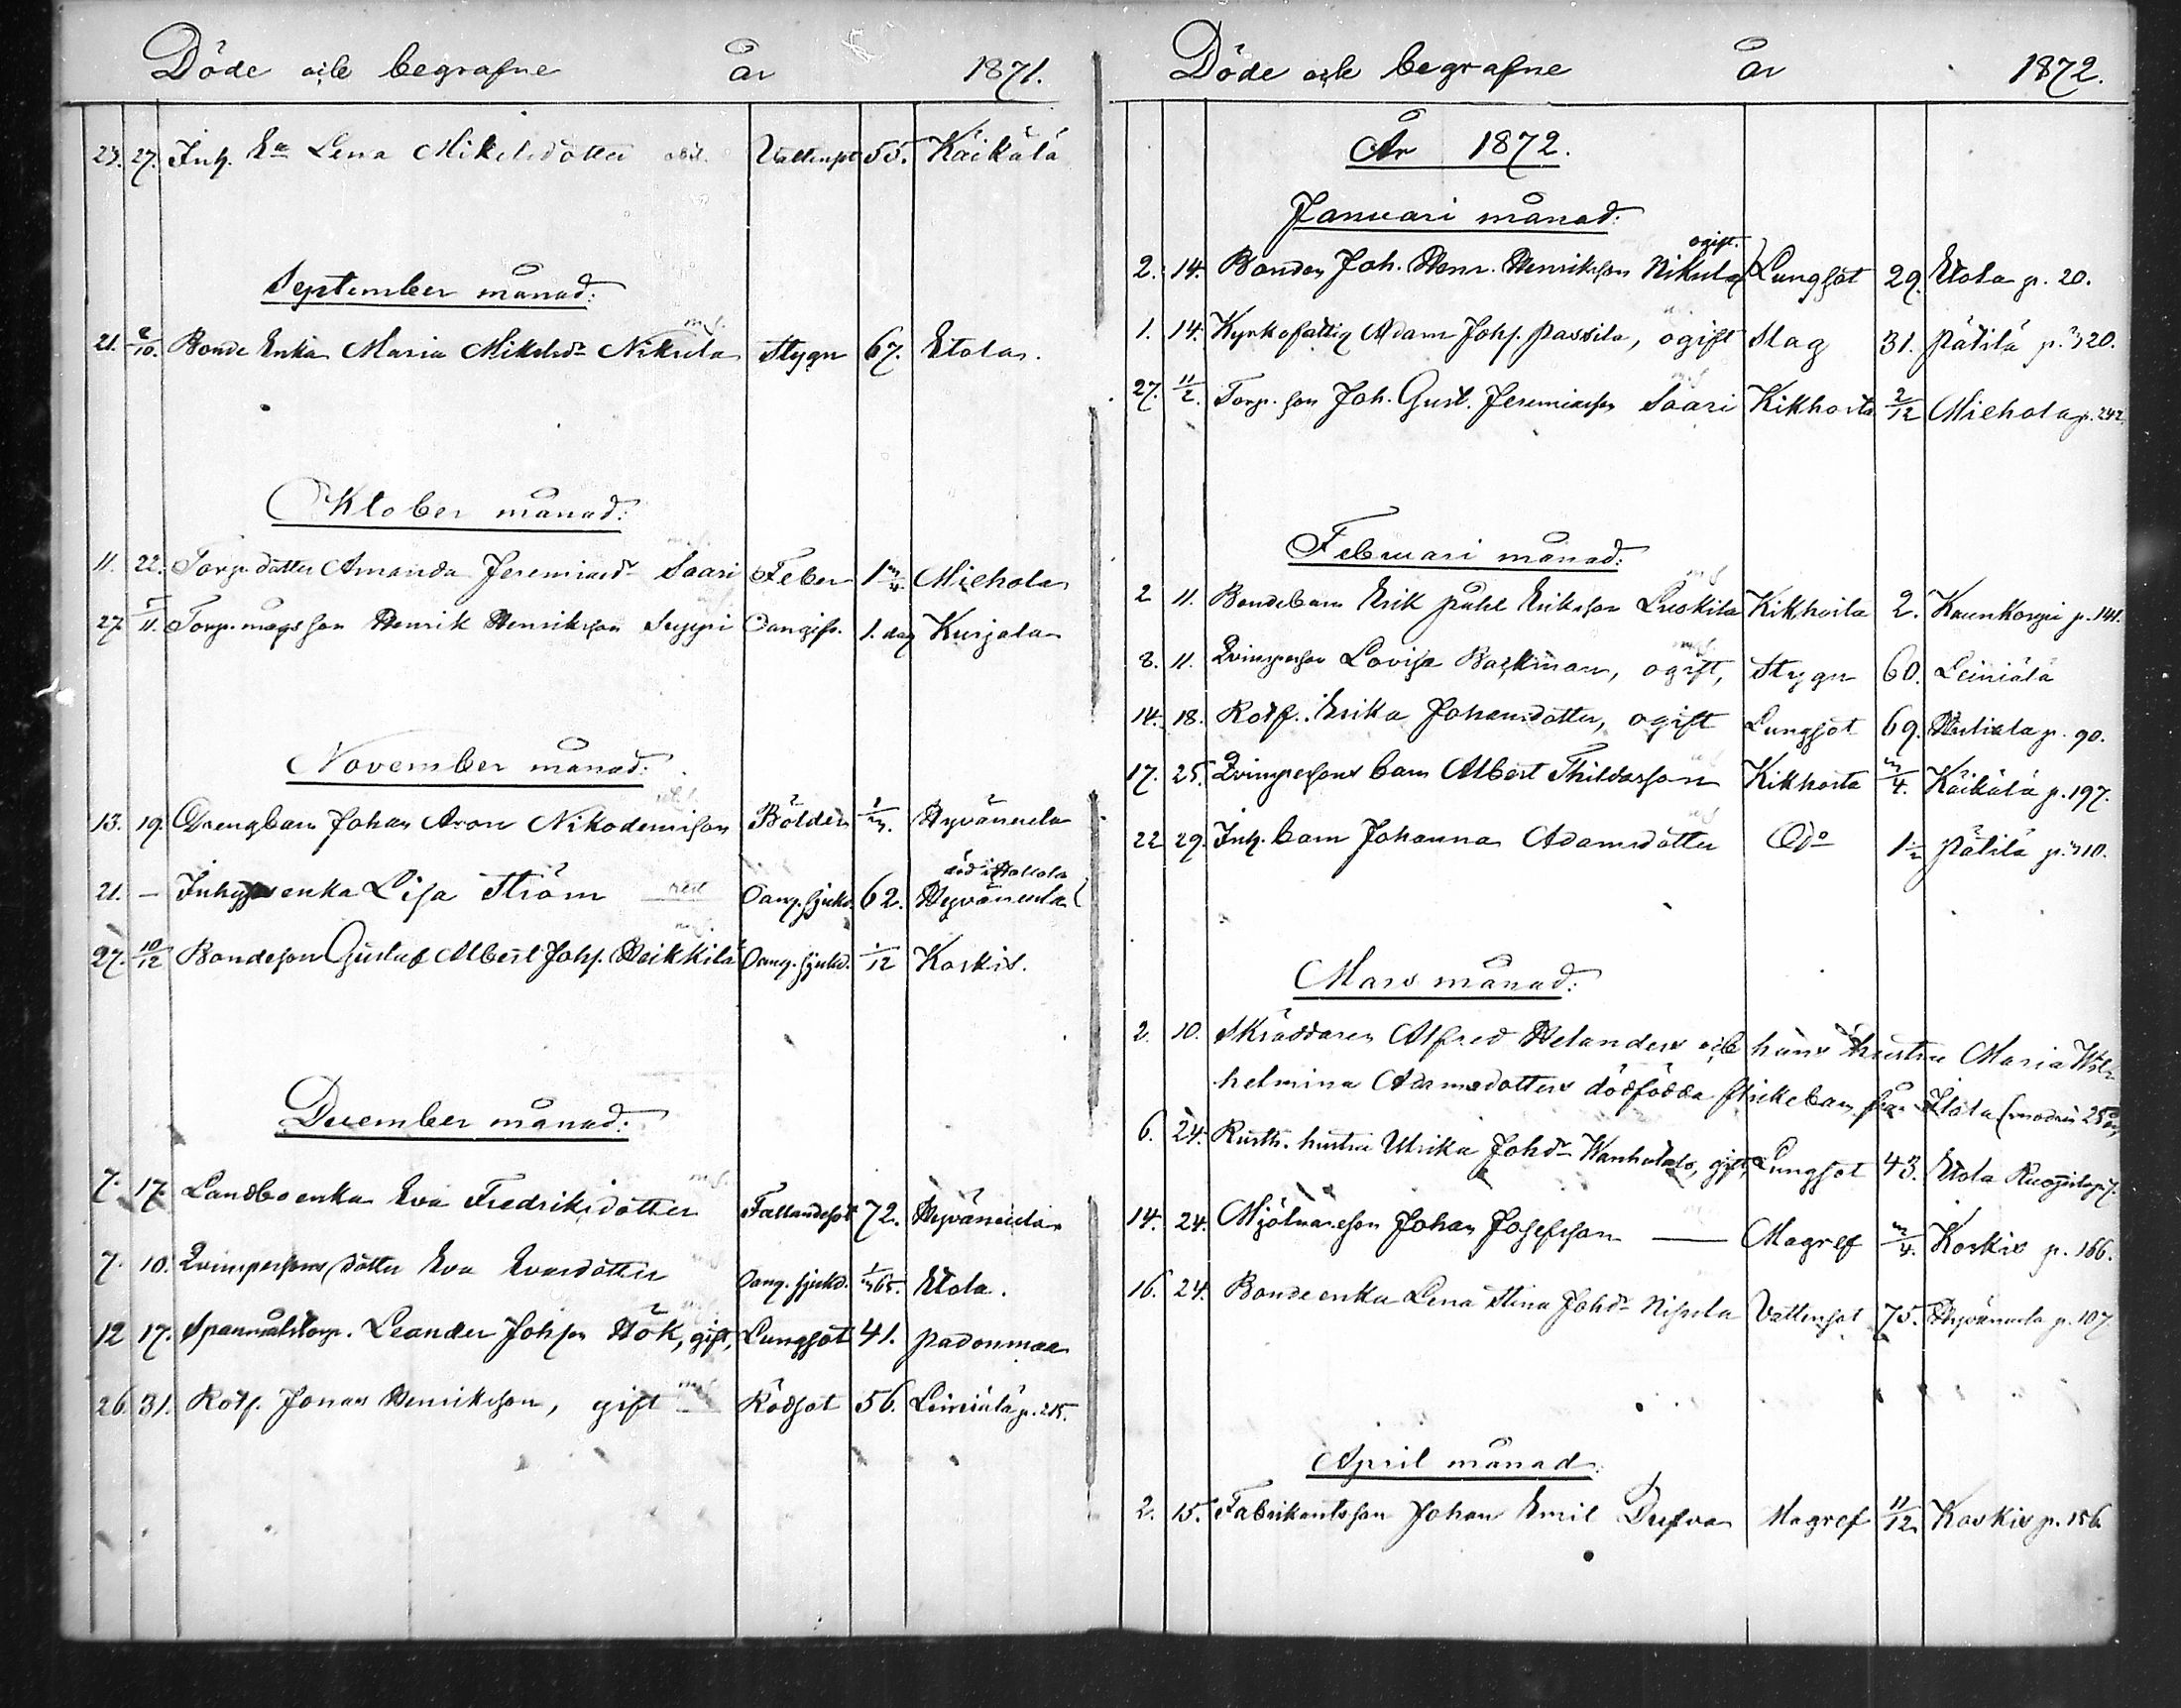 Döde och begrafne år 1871.
23. 27. Inh. Ea Lena Mikelsdotter Vattensot 55. Käikälä
September månad:
21. 2/10. Bonde Enka Maria Mikelsdr Nikula Stygn 67. Etola.
Oktober månad:
11. 22. Torp. dotter Amanda Jeremiasdr Saari Feber 1 m/4. Miehola
27. 5/11. Torp. mågs son Henrik Henriksson Suppi Oangifv. 1. dag Kurjala
November månad:
13. 19. Drengbarn Johan Aron Nikodemison Bölder 2/m. Hyväneula
död i Hollola
21. – Inhys enka Lisa Ström Oang. sjukd. 62. Hyväneula
27. 10/12 Bondeson Gustaf Albert Johs. Heikkilä Oang. sjukd. 1/12 Koskis.
December månad:
7. 17. Landbo enka Eva Fredriksdotter Fallandesot 72. Hyväneula
7. 10. Qvinspersons dotter Eva Evasdotter Oang. sjukd. Etola.
12 17. Spanmålstorp. Leander Johsson Hök, gift, Lungsot 41. Padonmaa
26. 31. Rotf. Jonas Henriksson, gift Rödsot 56. Leiniälä p. 215.
Döde och begrafne år 1872.
År 1872.
Januari månad:
ogift.
2. 14. Bonden Joh. Henr. Henriksson Nikula Lungsot 29. Etola p. 20.
1. 14. Kyrkofattig Adam Johs. Passila, ogift Slag 31. Pätilä p. 320.
27. 11/2. Torp. son Joh. Gust. Jeremiasson Saari Kikhosta 2/12 Miehola p. 242.
Februari månad:
2 11. Bondebarn Erik Pehl Eriksson Luskila Kikhosta 2. Kaunkorpi p. 141.
8. 11. Qvinsperson Lovisa Backman, ogift, Stygn 60. Leiniälä
14. 18. Rotf. Erika Johansdotter, ogift Lungsot 69. Huljala p. 90.
17. 25. Qvinspersons barn Albert Thildasson Kikhosta m/4. Käikälä p. 197.
22 29. Inh. barn Johanna Adamsdotter Do 1 1/2 Pätilä p. 310.
Mars månad:
2. 10. Skräddaren Alfred Helanders och hans hustru Maria Wil-
helmina Adamsdotters dödfödda flickebarn från Etola (modren 25 år)
6. 24. Rusth. hustru Ulrika Johdr Wanhatalo, gift, Lungsot 43. Etola
14. 24. Mjölnareson Johan Josefsson — Magref m/4. Koskis p. 166.
16. 24. Bonde enka Lena Stina Johdr Nipula Vattensot 75. Hyväneula p. 107.
April månad:
2. 15. Fabrikantsson Johan Emil Dufva Magref 11/12 Koskis p. 156.